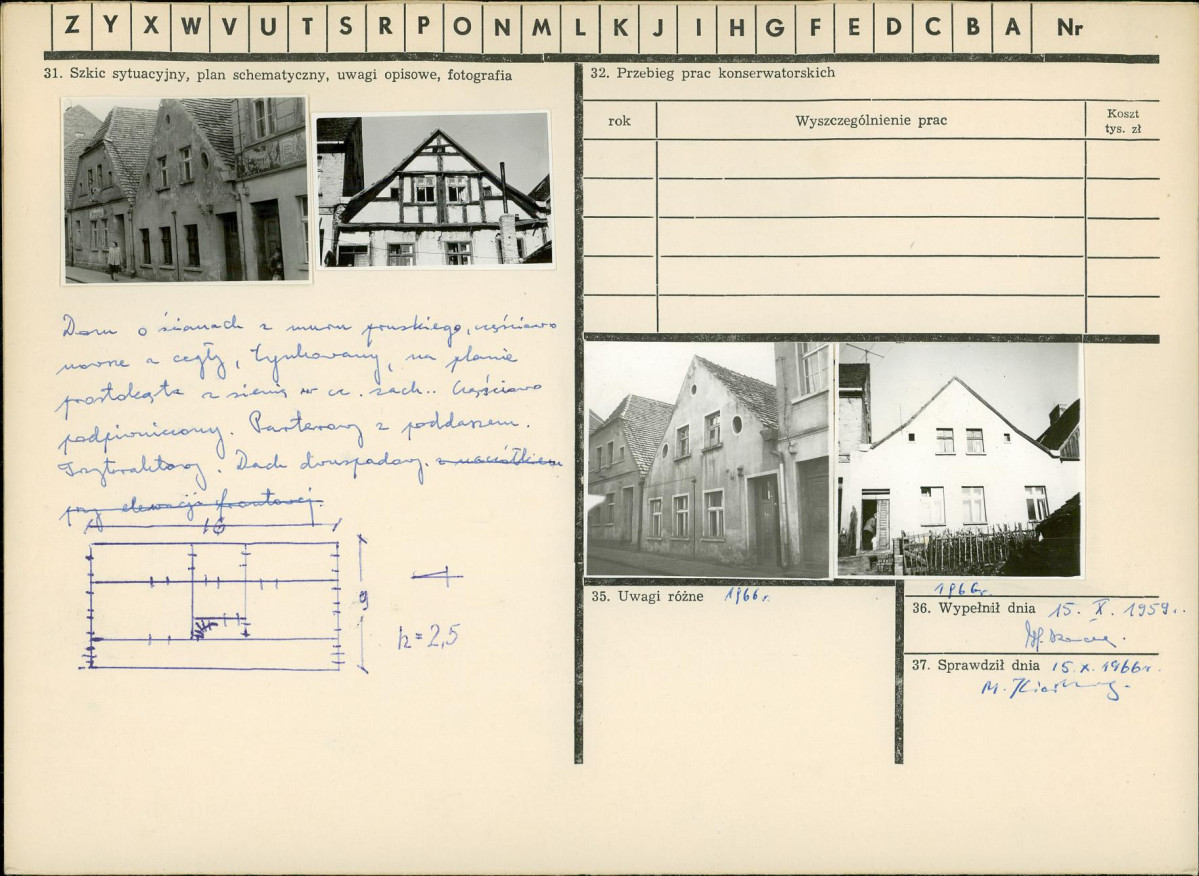 Z Y X W V U T S R P O N M L K J I H G F E D C B A Nr
31. Szkic sytuacyjny, plan schematyczny, uwagi opisowe, fotografia
Dom o ścianach z muru pruskiego, częściowo
z cegły, tynkowany, na planie
prostokąta z sienią w cz. zach.. Częściowo
podpiwniczony. Parterowy z poddaszem.
Dach dwuspadowy. z naciółkiem
przy elewacji frontowej.
16
9
h = 2,5
32. Przebieg prac konserwatorskich
rok
Wyszczególnienie prac
Koszt
tys. zł
35. Uwagi różne
1966 r.
1966 r.
36. Wypełnił dnia 15. X. 1959 r.
37. Sprawdził dnia 15. X. 1966 r.
M.